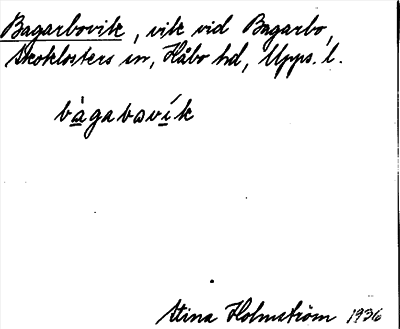 Bagarbovik, vik vid Bagarbo,
Skoklosters sn, Håbo hd, Upps. l.
bàgabovík
Stina Holmström 1936